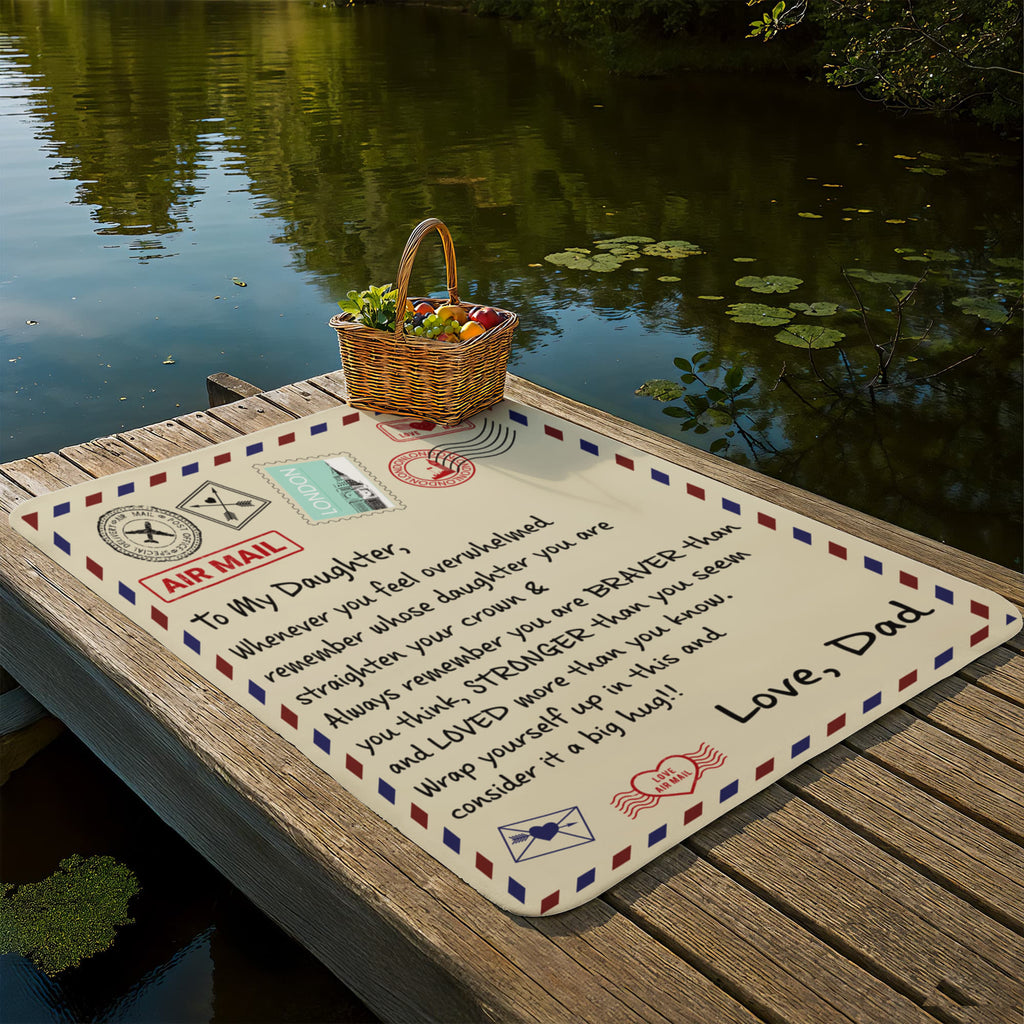 LOVE
LONDON LONDON
LONDON
MAIL
SPECIAL
AIR MAIL
To My Daughter,
Whenever you feel overwhelmed
remember whose daughter you are
straighten your crown &
Always remember you are BRAVER than
you think, STRONGER than you seem
and LOVED more than you know.
Wrap yourself up in this and
consider it a big hug!!
Love, Dad
LOVE
AIR MAIL